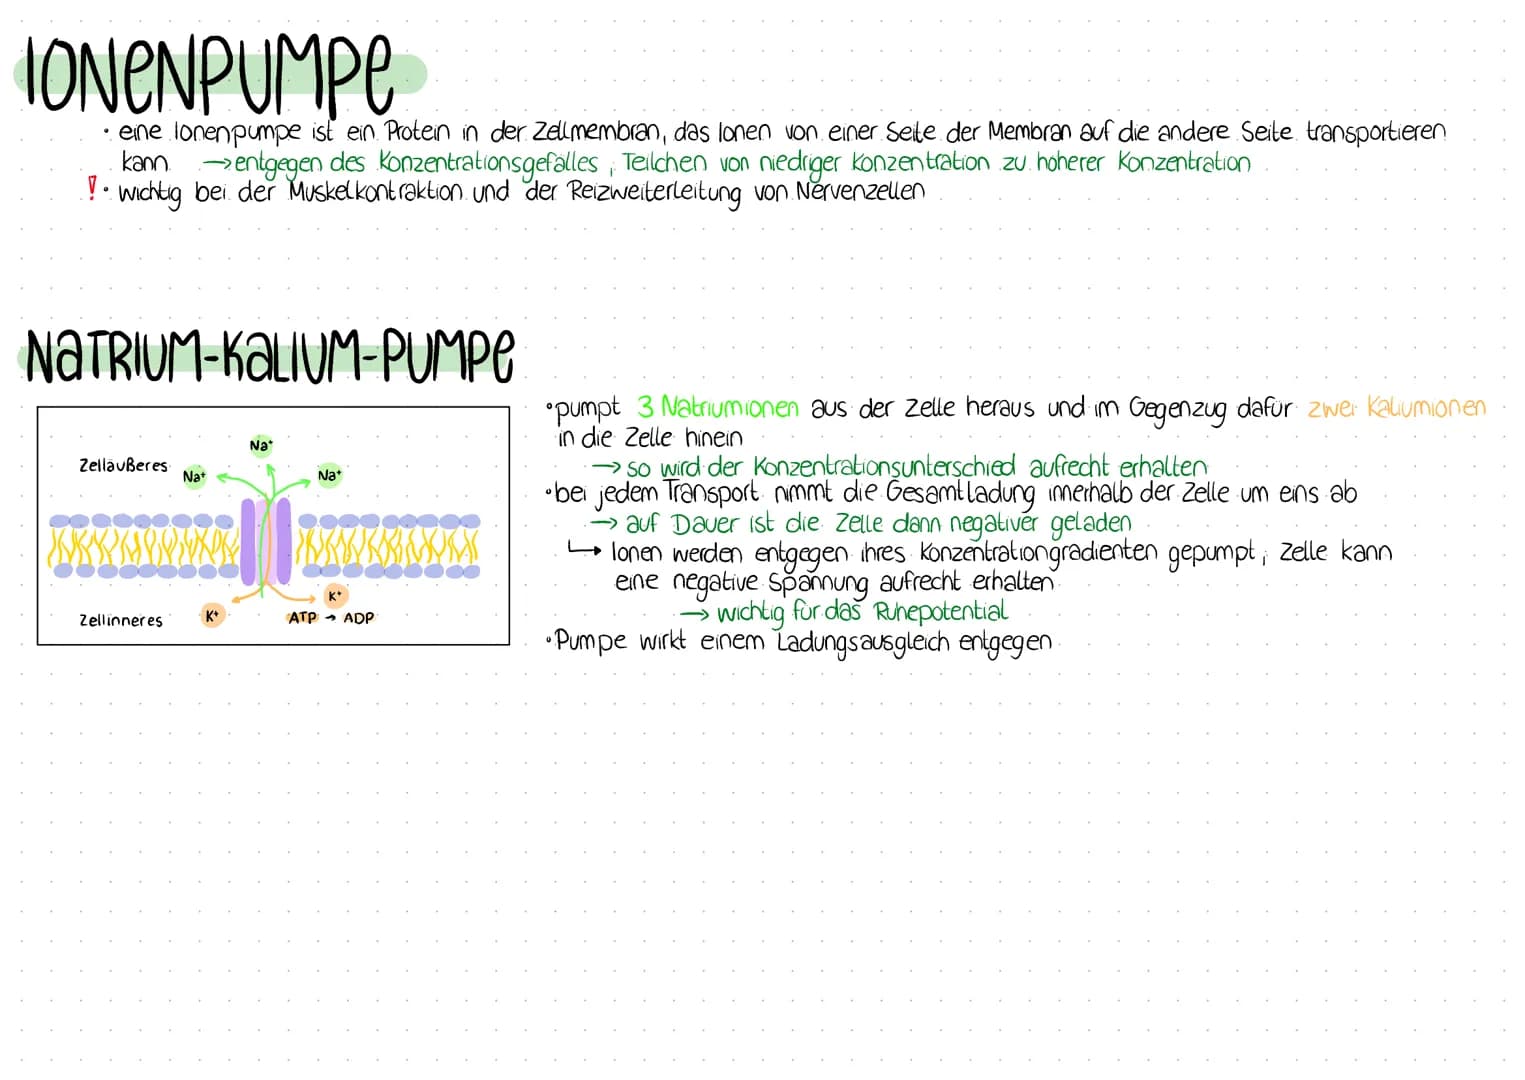 IONENPUMPE
• eine Ionenpumpe ist ein Protein in der Zellmembran, das Ionen von einer Seite der Membran auf die andere Seite transportieren
kann → entgegen des Konzentrationsgefälles, Teilchen von niedriger Konzentration zu höherer Konzentration
! • wichtig bei der Muskelkontraktion und der Reizweiterleitung von Nervenzellen
NATRIUM-KALIUM-PUMPE
• pumpt 3 Natriumionen aus der Zelle heraus und im Gegenzug dafür zwei Kaliumionen
in die Zelle hinein
→ so wird der Konzentrationsunterschied aufrecht erhalten
• bei jedem Transport nimmt die Gesamtladung innerhalb der Zelle um eins ab
→ auf Dauer ist die Zelle dann negativer geladen
↳ Ionen werden entgegen ihres Konzentrationgradienten gepumpt, Zelle kann
eine negative Spannung aufrecht erhalten
→ wichtig für das Ruhepotential
• Pumpe wirkt einem Ladungsausgleich entgegen
Zelläußeres
Na⁺
Na⁺
Na⁺
Zellinneres
K⁺
K⁺
ATP → ADP